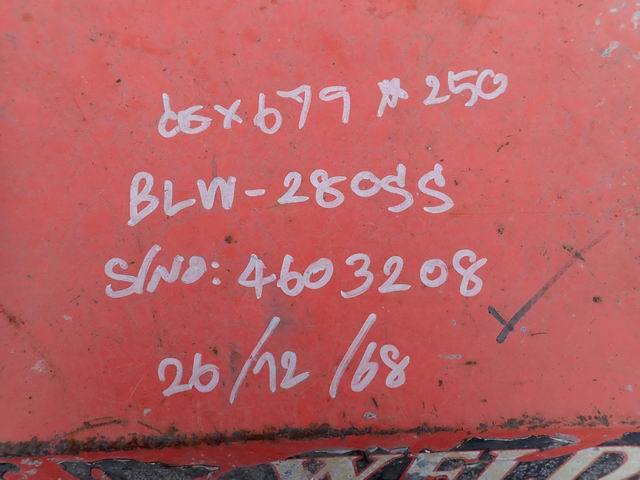 d6x679 * 250
BLW-280SS
S/NO: 4603208
26/12/68
WELD